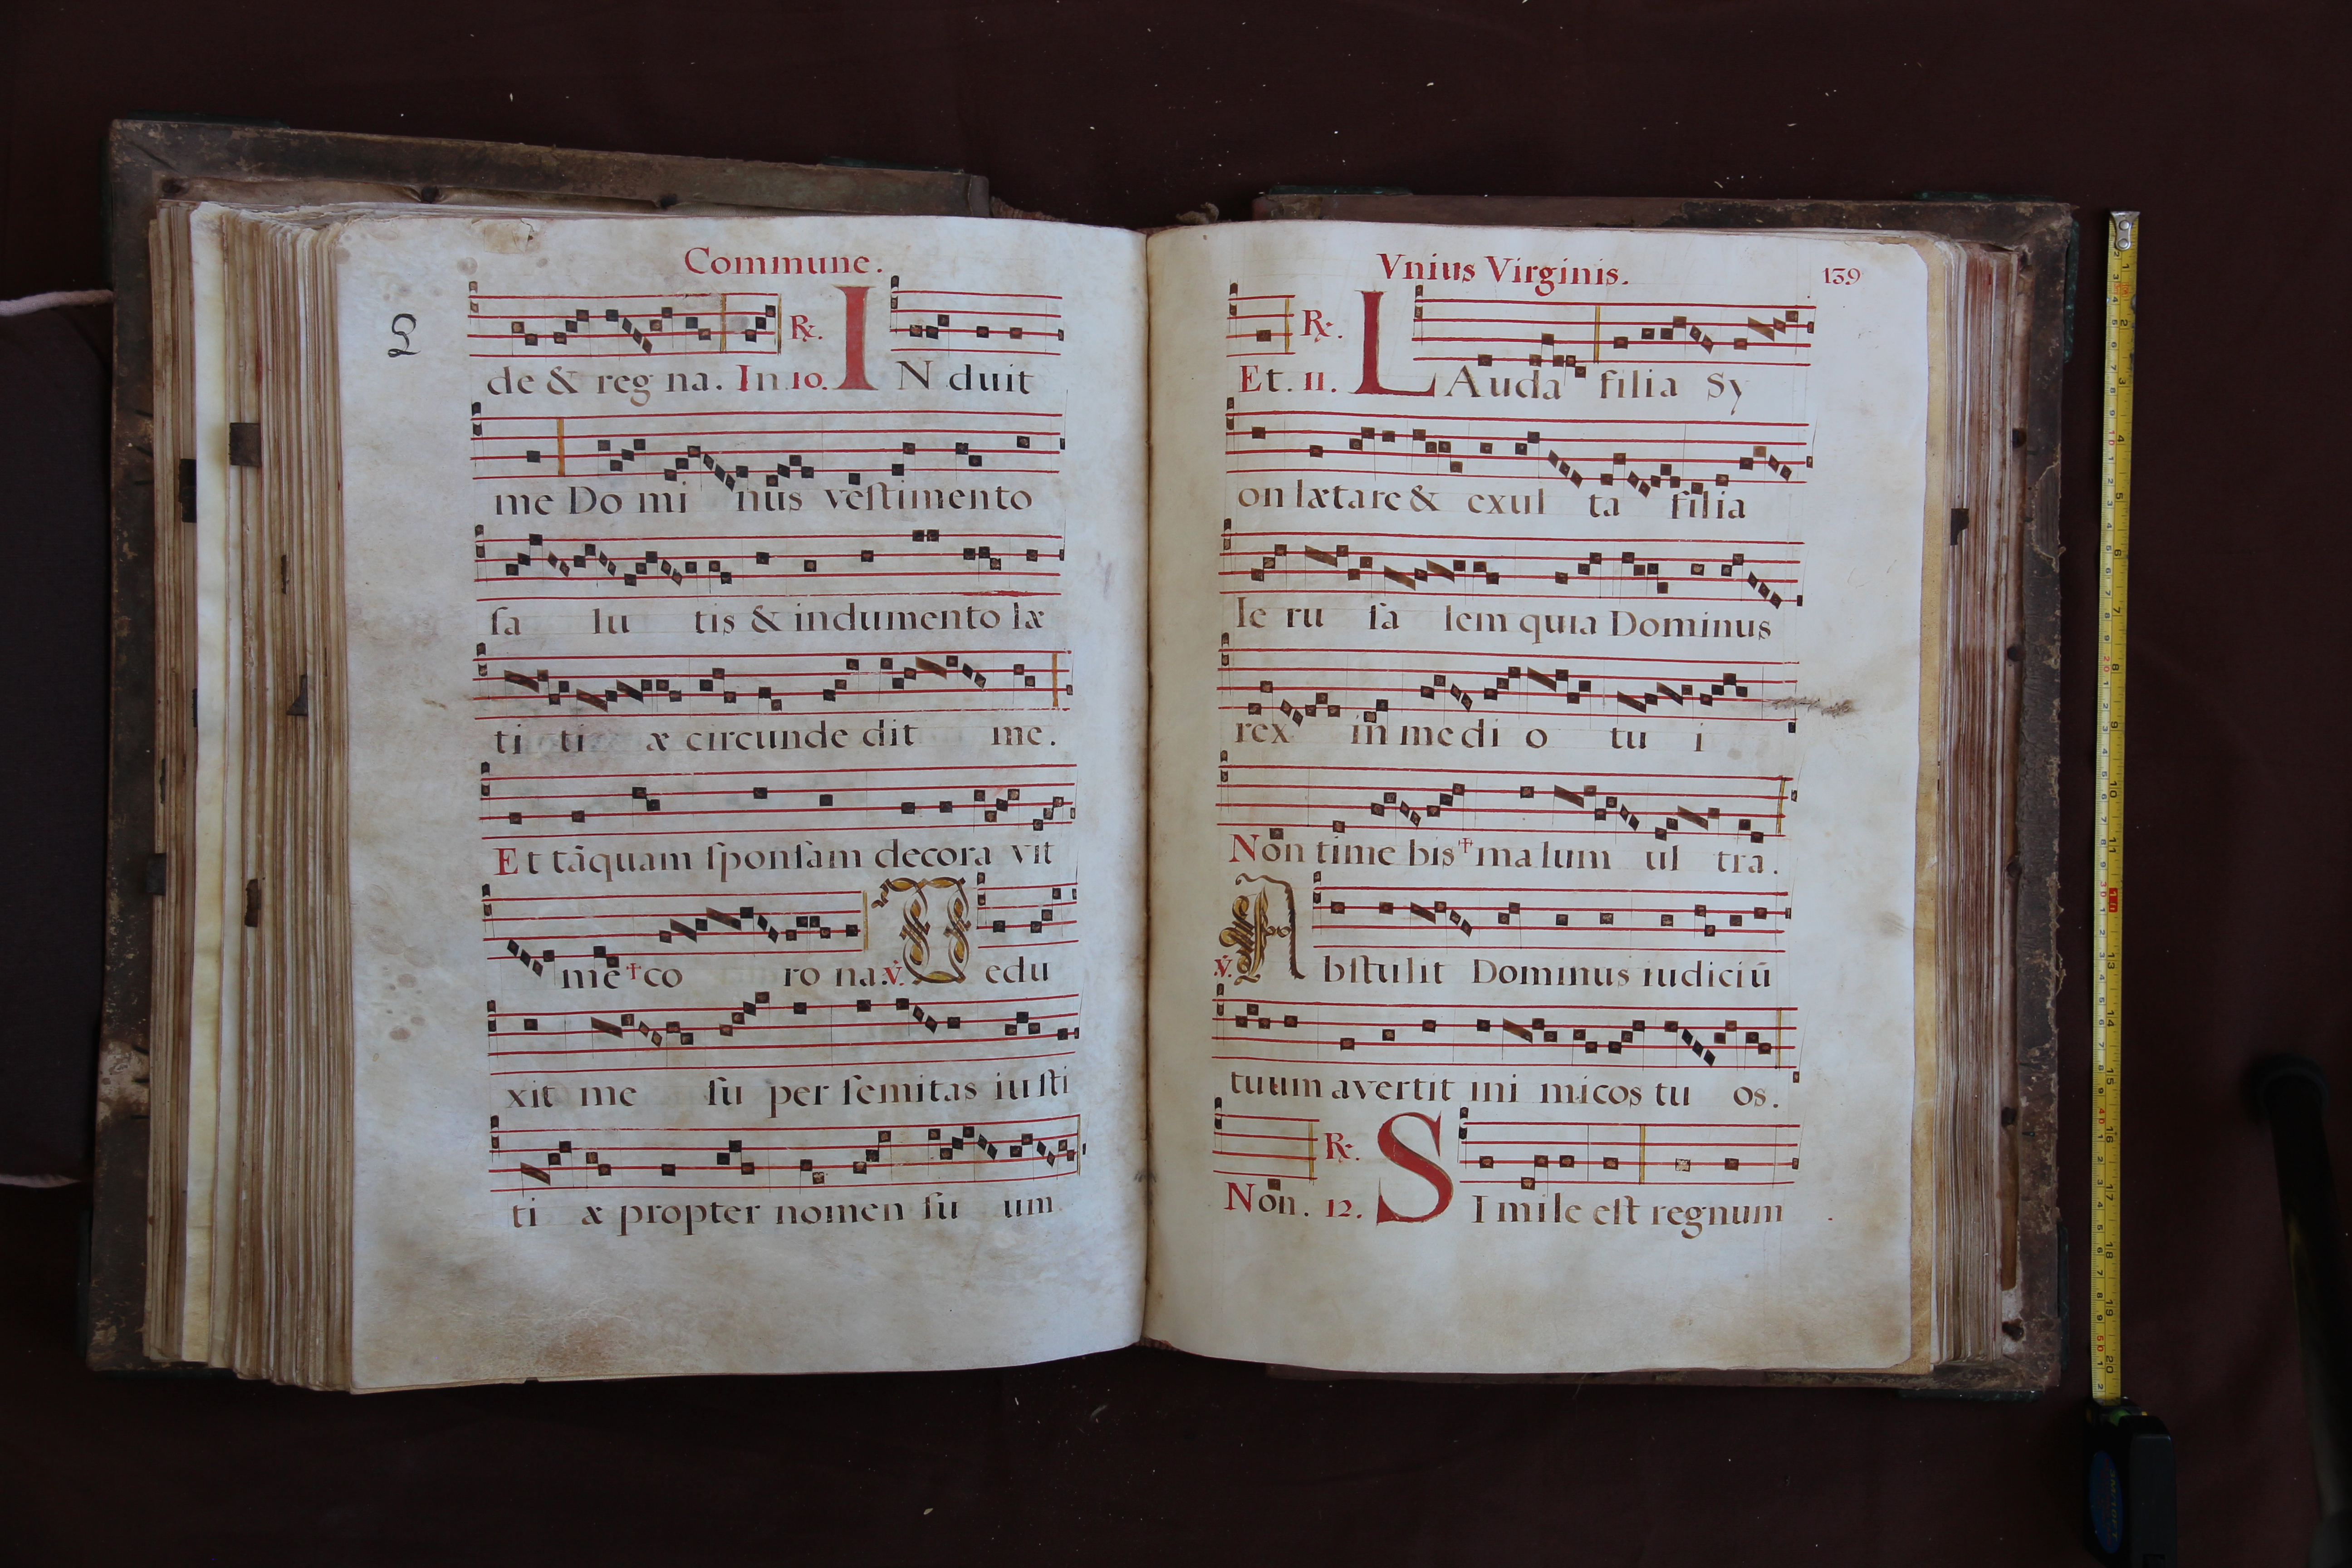 Commune.
de & reg na. In. 10. ℟. IN duit
me Do mi nus veſtimento
ſa lu tis & indumento læ
ti ti æ circunde dit me.
Et tãquam ſponſam decora vit
me † co ro na. ℣. Dedu
xit me ſu per ſemitas iuſti
ti æ propter nomen ſu um
Vnius Virginis. 139
Et. 11. ℟. LAuda filia Sy
on lætare & exul ta filia
Ie ru ſa lem quia Dominus
rex in medi o tu i
Non time bis † malum ul tra.
℣. Abſtulit Dominus iudiciũ
tuum avertit ini micos tu os.
Non. 12. ℟. SImile eſt regnum